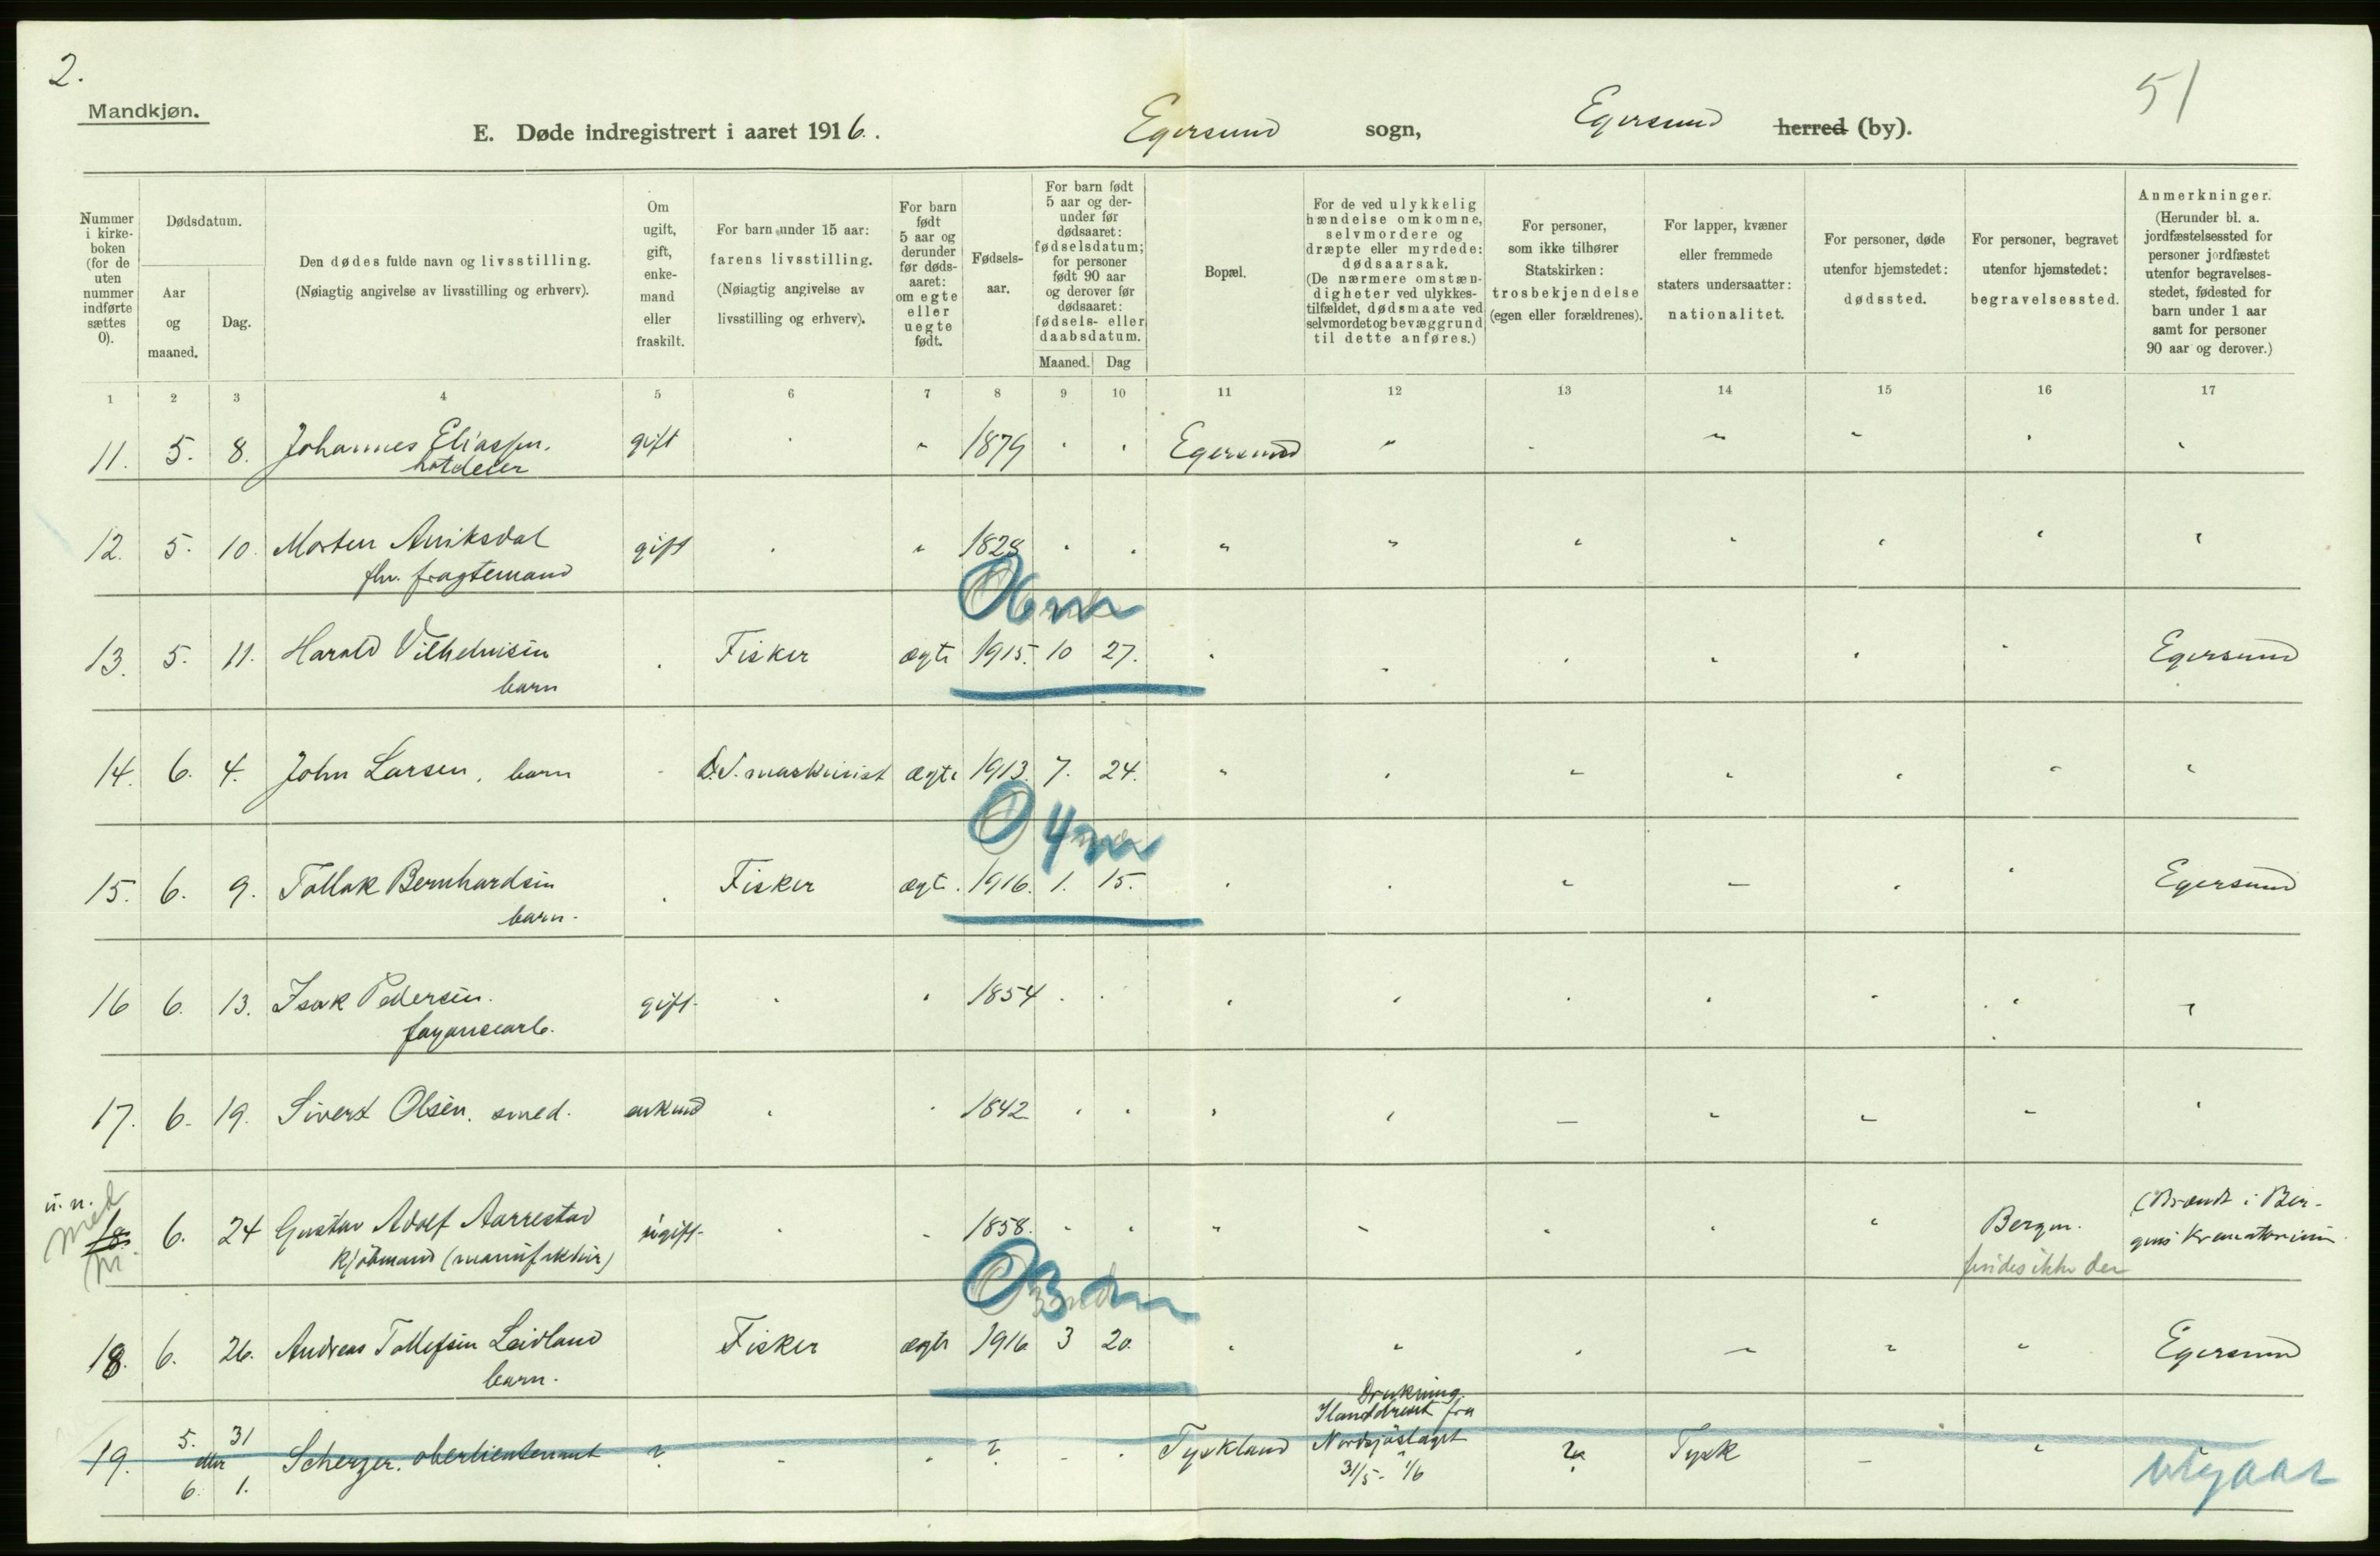 2.
51
Mandkjøn.
E. Døde indregistrert i aaret 1916. Egersund sogn, Egersund herred (by).
Nummer i kirke-boken (for de uten nummer indførte sættes 0).
Dødsdatum.
Aar og maaned.
Dag.
Den dødes fulde navn og livsstilling.
(Nøiagtig angivelse av livsstilling og erhverv).
Om ugift, gift, enke-mand eller fraskilt.
For barn under 15 aar:
farens livsstilling.
(Nøiagtig angivelse av livsstilling og erhverv).
For barn født 5 aar og derunder før døds-aaret: om egte eller uegte født.
Fødsels-aar.
For barn født 5 aar og der-under før dødsaaret: fødselsdatum; for personer født 90 aar og derover før dødsaaret: fødsels- eller daabsdatum.
Maaned.
Dag
Bopæl.
For de ved ulykkelig hændelse omkomne, selvmordere og dræpte eller myrdede: dødsaarsak. (De nærmere omstæn-digheter ved ulykkes-tilfældet, dødsmaate ved selvmordet og bevæggrund til dette anføres.)
For personer, som ikke tilhører Statskirken: trosbekjendelse (egen eller forældrenes).
For lapper, kvæner eller fremmede staters undersaatter: nationalitet.
For personer, døde utenfor hjemstedet: dødssted.
For personer, begravet utenfor hjemstedet: begravelsessted.
Anmerkninger.
(Herunder bl. a. jordfæstelsessted for personer jordfæstet utenfor begravelses-stedet, fødested for barn under 1 aar samt for personer 90 aar og derover.)
1 2 3 4 5 6 7 8 9 10 11 12 13 14 15 16 17
11. 5. 8. Johannes Eliassen. gift " 1879 Egersund "
12. 5. 10. Morten Aniksdal gift " 1828 "
fhv. fragtemand
0 6 m
13. 5. 11. Harald Vilhelmsen Fisker ægte 1915. 10 27. " Egersund
barn
14. 6. 4. John Larsen, barn D.S. maskinist ægte 1913. 7. 24. "
0 4 m
15. 6. 9. Tollak Bernhardsen Fisker ægt. 1916. 1. 15. " Egersund
barn.
16 6. 13. Isak Pedersen. gift. " 1854 "
fayancearb.
17. 6. 19. Sivert Olsen. smed. enkmd " 1842 "
u.n.
med
18. 6. 24 Gustav Adolf Aarrestad ugift. " 1858. " Bergen. (Brændt i Ber-
m. kjøbmand (manufaktur) findes ikke der gens Krematorium
0 3 m
18. 6. 26. Andreas Tollefsen Leidland Fisker ægte 1916 3 20. " Egersund
barn.
Drukning.
Ilanddrevet fra
19. 5. 31 Scherzer. oberlieutenant ? ? Tyskland Nordsjöslaget ? Tysk
eller 31/5 - 1/6
6. 1. utgaar